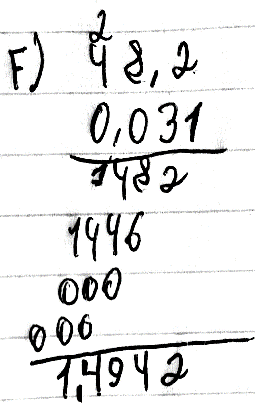 2
F) 48,2
0,031
1482
1446
000
000
1,4942